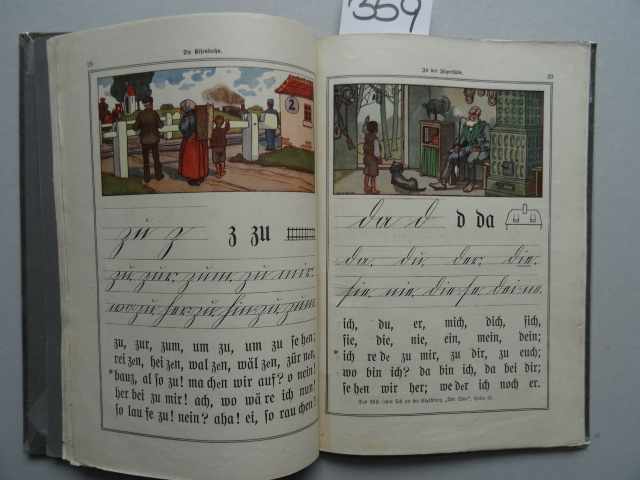 359
Die Eisenbahn.
2
zu z z zu
zu. zur. zum. zu mir.
wozu her zu hin zu zum
zu, zur, zum, um zu, um zu se hen;
rei zen, hei zen, wal zen, wäl zen, zür nen,
*bauz, al so zu! ma chen wir auf? o nein!
her bei zu mir! ach, wo wäre ich nun!
so lau fe zu! nein? aha! ei, so rau chen!
In der
23
da d d da
da. du. der. die.
sie. nie. die se. dei ne.
ich, du, er, mich, dich, sich,
sie, die, nie, ein, mein, dein;
*ich re de zu mir, zu dir, zu euch;
wo bin ich? da bin ich, da bei dir;
se hen wir her; we der ich noch er.